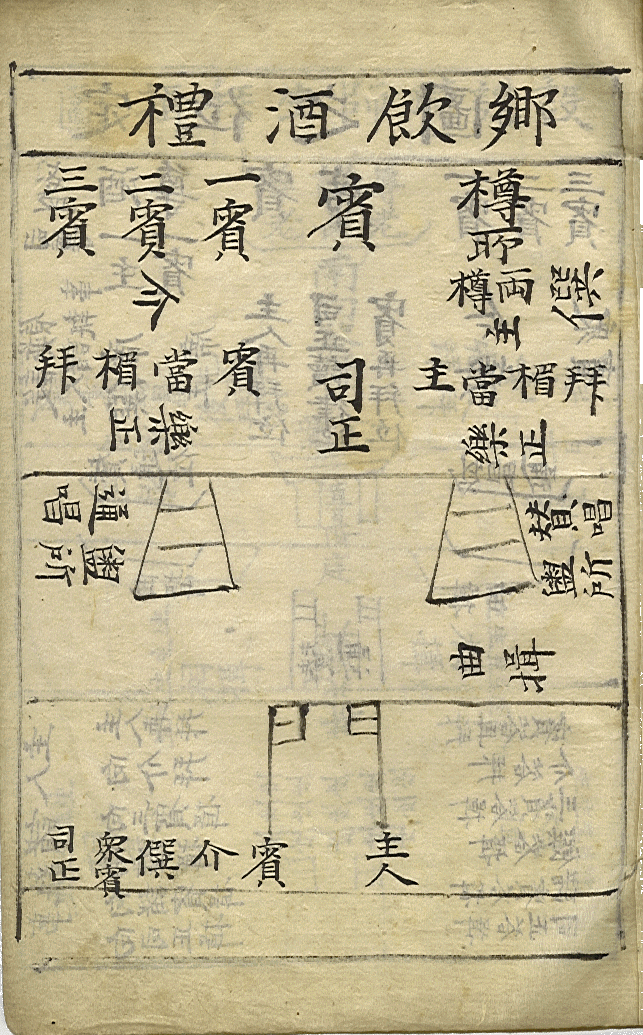 鄉飮酒禮
樽所
兩樽
主
僎
賓
一賓
二賓
三賓
介
拜楣當主
司正
賓當楣拜
樂正
樂正
贊唱
盥所
通唱
盥所
門
主人
賓
介
僎
衆賓
司正